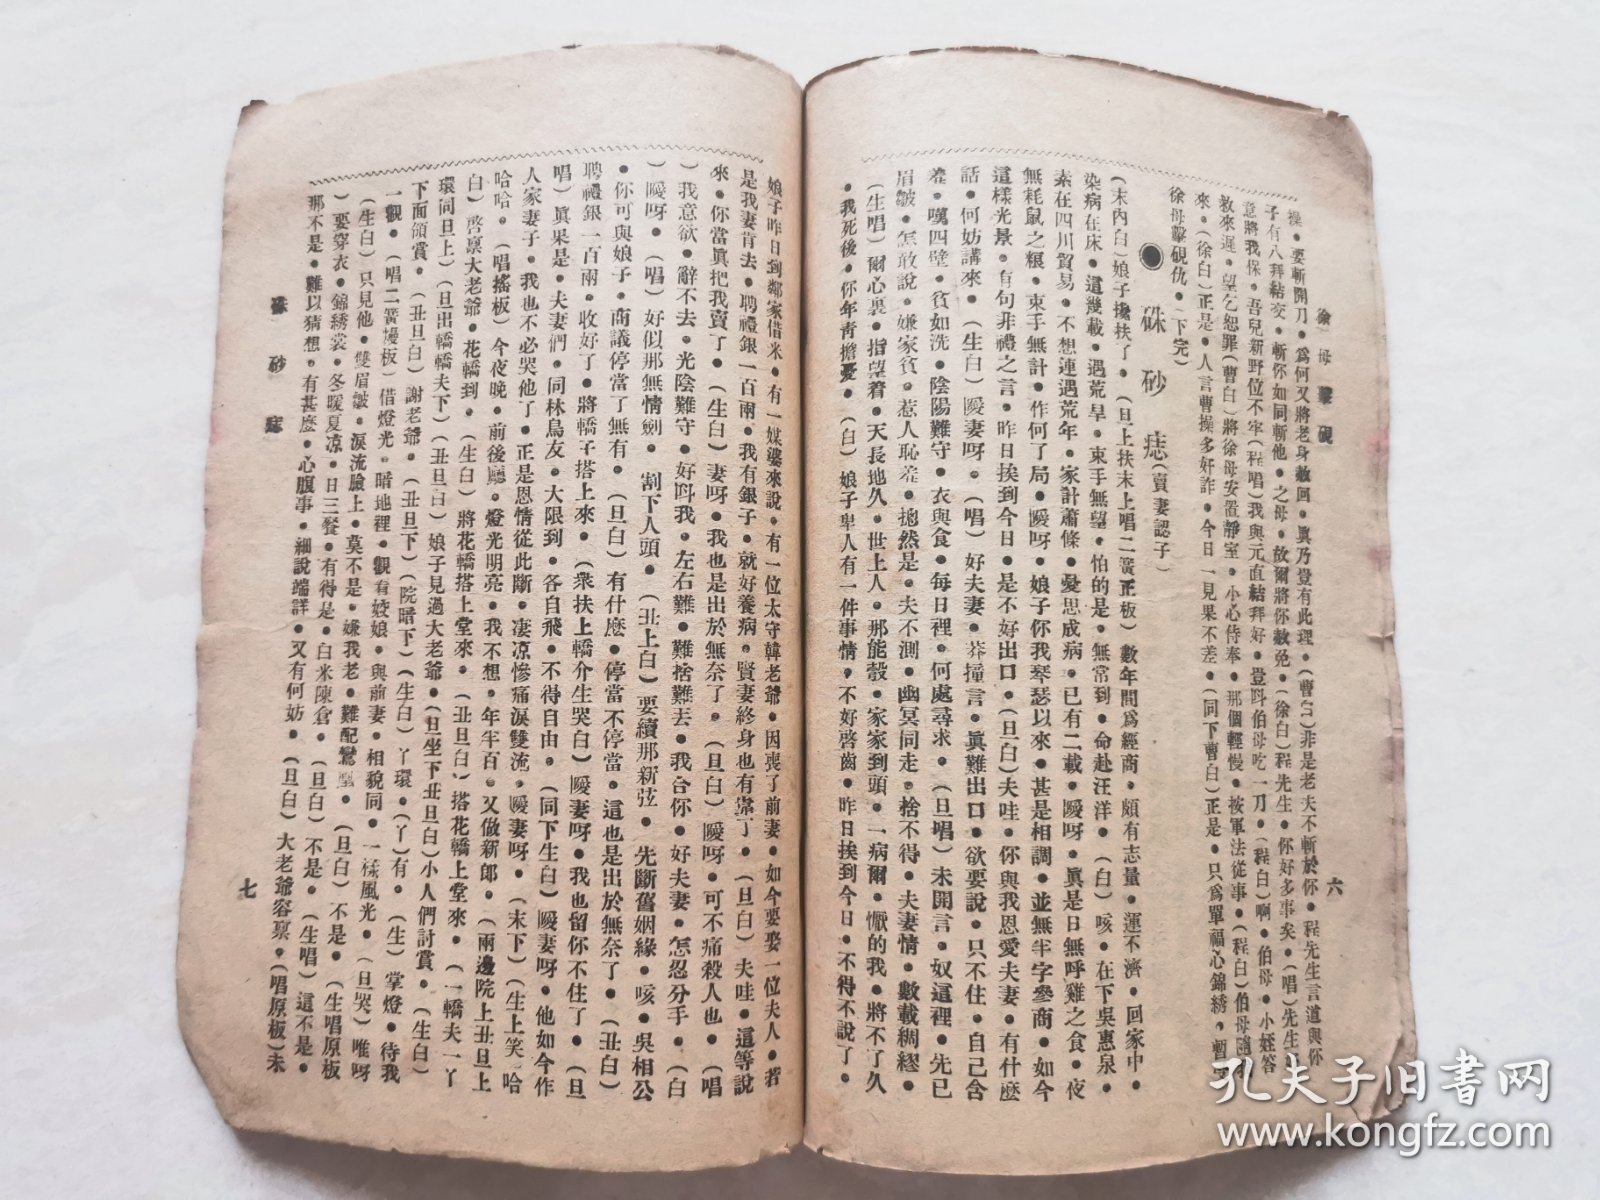 徐母擊硯
六
操•要斬開刀•爲何又將老身赦回•眞乃豈有此理•(曹白)非是老夫不斬於你•程先生言道與你
子有八拜結交•斬你如同斬他•之母•故爾將你赦免•(徐白)程先生•你好多事矣•(唱)先生
意將我保•吾兒新野位不牢(程唱)我與元直結拜好•豈叫伯母吃一刀•(程白)啊•伯母•小姪答
救來遲•望乞恕罪(曹白)將徐母安置靜室•小心侍奉•那個輕慢•按軍法從事•(程白)伯母隨
來•(徐白)正是•人言曹操多奸詐•今日一見果不差•(同下曹白)正是•只爲單福心錦綉•暫
徐母擊硯仇•(下完)
●硃砂痣(賣妻認子)
(末內白)娘子攙扶了•(旦上扶末上唱二簧正板)數年間爲經商•頗有志量•運不濟•回家中•
染病在床•這幾載•遇荒旱•束手無望•怕的是•無常到•命赴汪洋•(白)咳•在下吳惠泉•
素在四川貿易•不想連遇荒年•家計蕭條•憂思成病•已有二載•噯呀•眞是日無呼雞之食•夜
無耗鼠之糧•束手無計•作何了局•噯呀•娘子你我琴瑟以來•甚是相調•並無半字參商•如今
這樣光景•有句非禮之言•昨日挨到今日•是不好出口•(旦白)夫哇•你與我恩愛夫妻•有什麼
話•何妨講來•(生白)噯妻呀•(唱)好夫妻•莽撞言•眞難出口•欲要說•只不住•自己含
羞•嘆四壁•貧如洗•陰陽難守•衣與食•每日裡•何處尋求•(旦唱)未開言•奴這裡•先已
眉皺•怎敢說•嫌家貧•惹人恥羞•摠然是•夫不測•幽冥同走•捨不得•夫妻情•數載綢繆•
(生唱)爾心裏•指望着•天長地久•世上人•那能彀•家家到頭•一病爾•懨的我•將不了久
•我死後•你年青擔憂•(白)娘子卑人有一件事情•不好啓齒•昨日挨到今日•不得不說了•
娘子昨日到鄰家借米•有一媒婆來說•有一位太守韓老爺•因喪了前妻•如今要娶一位夫人•若
是我妻肯去•聘禮銀一百兩•我有銀子•就好養病•賢妻終身也有靠了•(旦白)夫哇•這等說
來•你當眞把我賣了•(生白)妻呀•我也是出於無奈了•(旦白)噯呀•可不痛殺人也•(唱
)我意欲•辭不去•光陰難守•好叫我•左右難•難捨難去•我合你•好夫妻•怎忍分手•(白
)噯呀•(唱)好似那無情劍•割下人頭•(丑上白)要續那新弦•先斷舊姻緣•咳•吳相公
•你可與娘子•商議停當了無有•(旦白)有什麽•停當不停當•這也是出於無奈了•(丑白)
聘禮銀一百兩•收好了•將轎子搭上來•(衆扶上轎介生哭白)噯妻呀•我也留你不住了•(旦
唱)眞果是•夫妻們•同林鳥友•大限到•各自飛•不得自由•(同下生白)噯妻呀•他如今作
人家妻子•我也不必哭他了•正是恩情從此斷•凄凉慘痛淚雙流•噯妻呀•(末下)(生上笑•哈
哈哈•(唱搖板)今夜晚•前後廳•燈光明亮•我不想•年半百•又做新郎•(兩邊院上丑旦上
白)啓禀大老爺•花轎到•(生白)將花轎搭上堂來•(丑旦白)搭花轎上堂來•(一轎夫一丫
環同旦上)(旦出轎轎夫下)(丑旦白)娘子見過大老爺•(旦坐下丑旦白)小人們討賞•(生白)
下面領賞•(丑旦白)謝老爺•(丑旦下)(院暗下)(生白)丫環•(丫)有•(生)掌燈•待我
一觀•(唱二簧慢板)借燈光•暗地裡•觀看姣娘•與前妻•相貌同•一樣風光•(旦哭)唯呀
(生白)只見他•雙眉皺•淚流臉上•莫不是•嫌我老•難配鸞凰•(旦白)不是•(生唱原板
)要穿衣•錦綉裳•冬暖夏凉•日三餐•有得是•白米陳倉•(旦白)不是•(生唱)這不是•
那不是•難以猜想•有甚麼•心腹事•細說端詳•又有何妨•(旦白)大老爺容禀•(唱原板)未
硃砂痣
七
孔夫子旧書网
www.kongfz.com